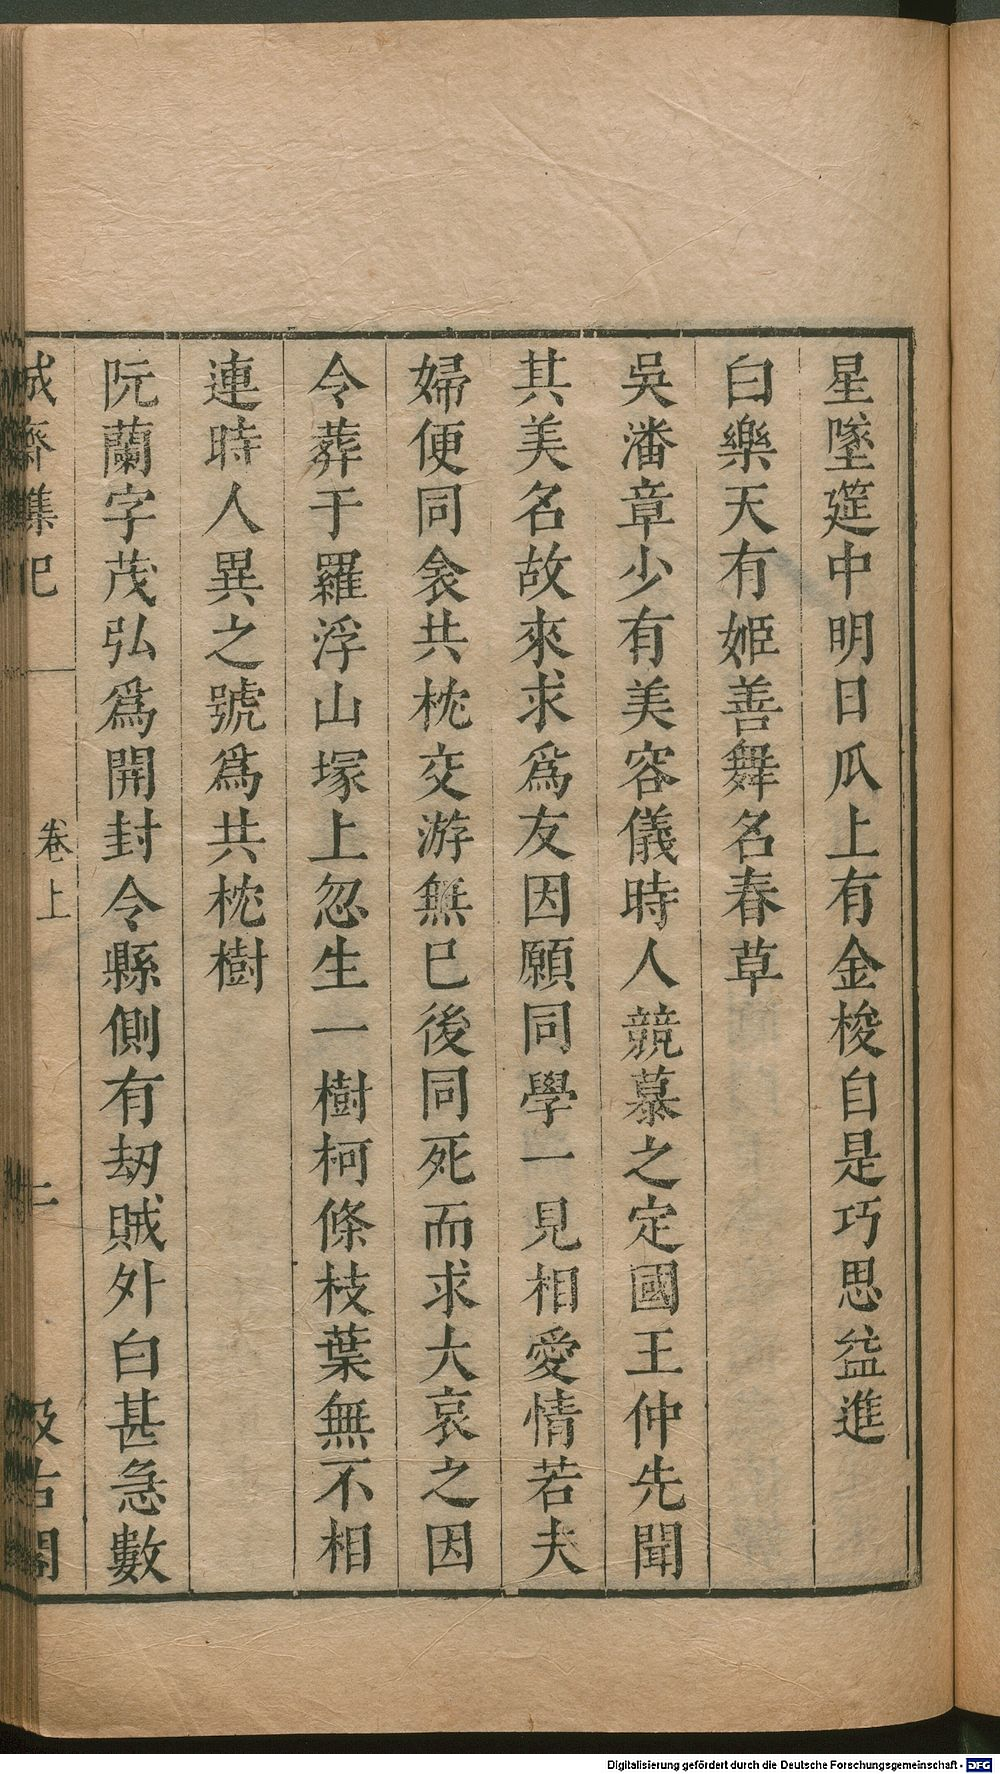 星墜筵中明日瓜上有金梭自是巧思益進
白樂天有姬善舞名春草
吳潘章少有美容儀時人競慕之定國王仲先聞
其美名故來求爲友因願同學一見相愛情若夫
婦便同衾共枕交游無已後同死而求大哀之因
令葬于羅浮山塚上忽生一樹柯條枝葉無不相
連時人異之號爲共枕樹
阮蘭字茂弘爲開封令縣側有劫賊外白甚急數
誠齋雜記
卷上
二
汲古閣
Digitalisierung gefördert durch die Deutsche Forschungsgemeinschaft - DFG